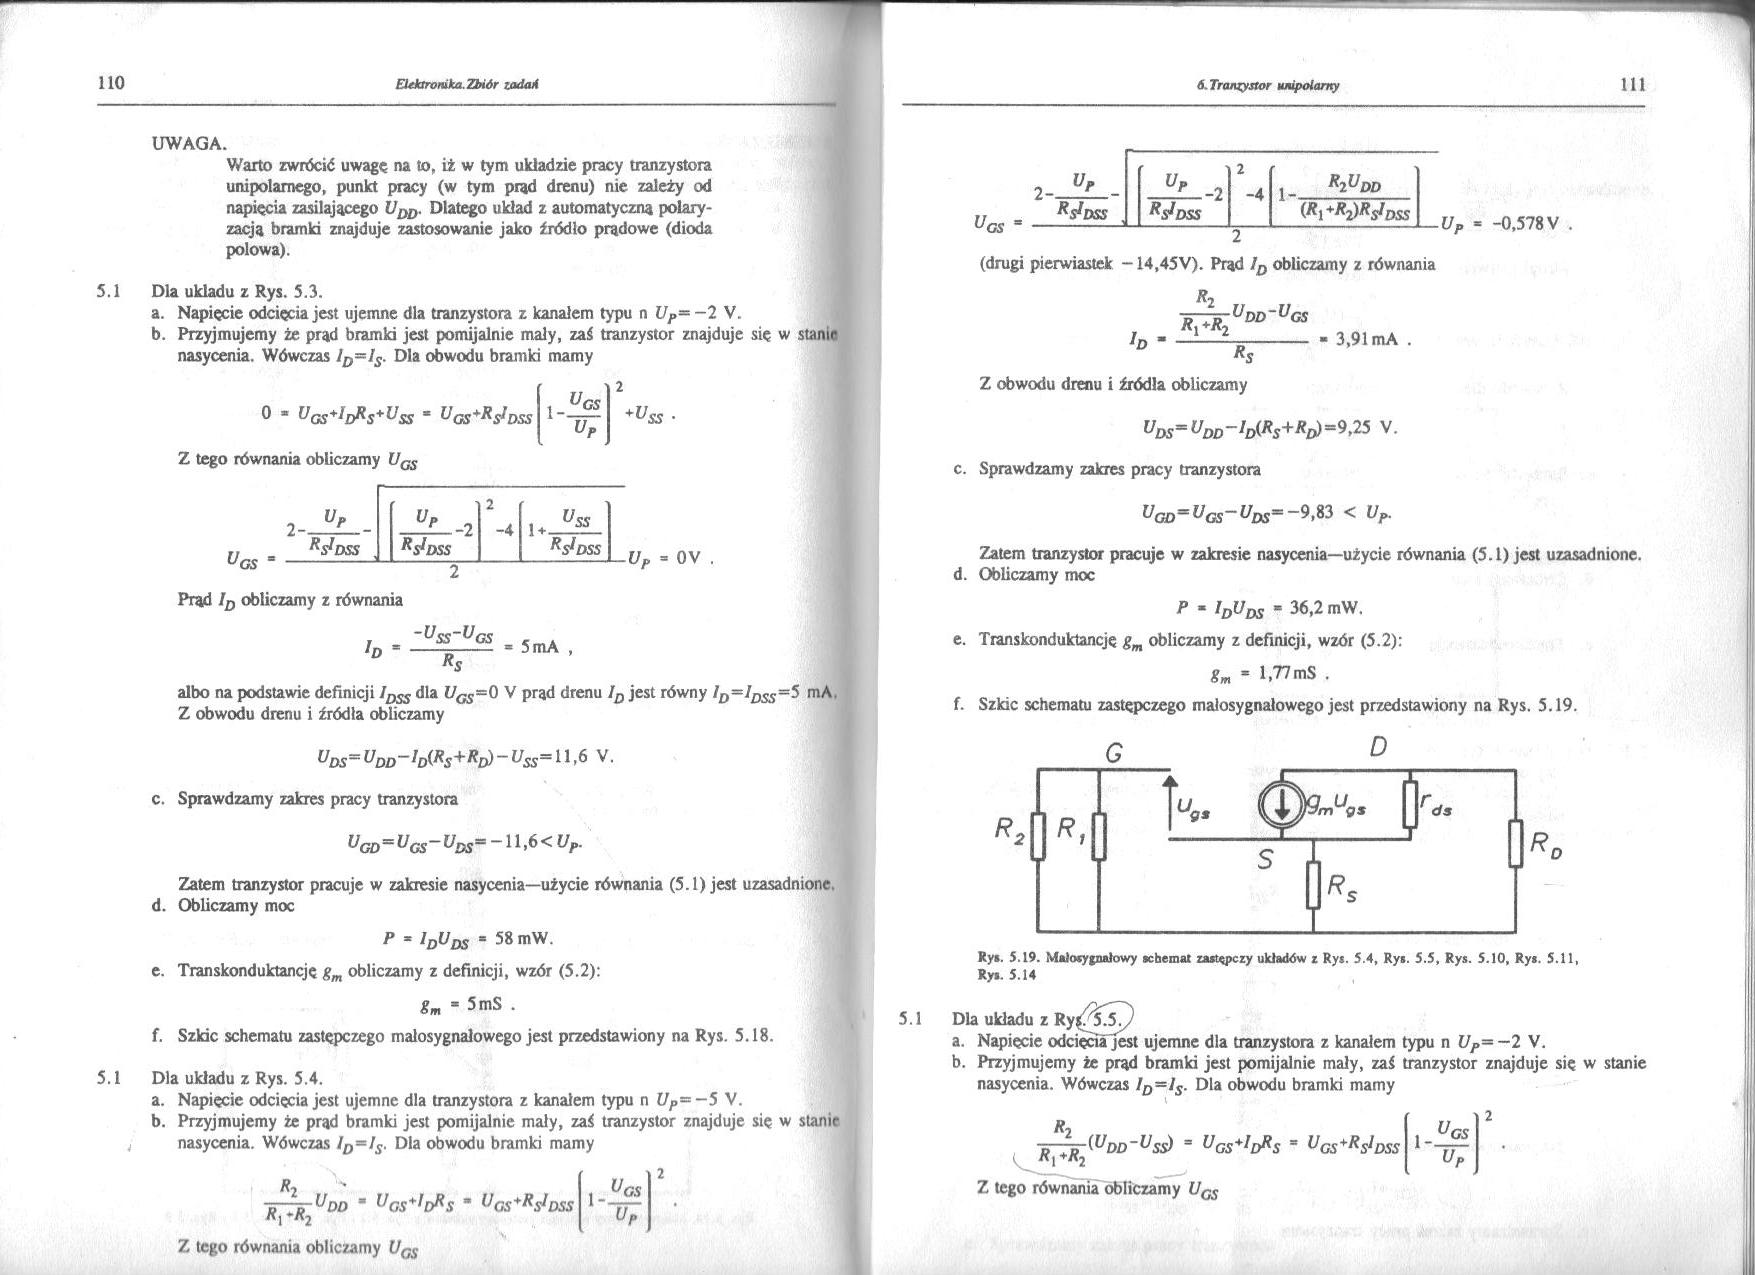 110
Elektronika. Zbiór zadań
UWAGA.
Warto zwrócić uwagę na to, iż w tym układzie pracy tranzystora
unipolarnego, punkt pracy (w tym prąd drenu) nie zależy od
napięcia zasilającego U_DD. Dlatego układ z automatyczną polary-
zacją bramki znajduje zastosowanie jako źródło prądowe (dioda
polowa).
5.1 Dla układu z Rys. 5.3.
a. Napięcie odcięcia jest ujemne dla tranzystora z kanałem typu n U_P=−2 V.
b. Przyjmujemy że prąd bramki jest pomijalnie mały, zaś tranzystor znajduje się w stanie
nasycenia. Wówczas I_D=I_S. Dla obwodu bramki mamy
0 = U_GS+I_DR_S+U_SS = U_GS+R_SI_DSS(1-U_GS/U_P)^2+U_SS .
Z tego równania obliczamy U_GS
U_GS = (2-U_P/(R_SI_DSS)-√((U_P/(R_SI_DSS)-2)^2-4(1+U_SS/(R_SI_DSS))))/2 U_P = 0V .
Prąd I_D obliczamy z równania
I_D = (-U_SS-U_GS)/R_S = 5mA ,
albo na podstawie definicji I_DSS dla U_GS=0 V prąd drenu I_D jest równy I_D=I_DSS=5 mA.
Z obwodu drenu i źródła obliczamy
U_DS=U_DD−I_D(R_S+R_D)−U_SS=11,6 V.
c. Sprawdzamy zakres pracy tranzystora
U_GD=U_GS−U_DS=−11,6<U_P.
Zatem tranzystor pracuje w zakresie nasycenia—użycie równania (5.1) jest uzasadnione.
d. Obliczamy moc
P = I_DU_DS = 58 mW.
e. Transkonduktancję g_m obliczamy z definicji, wzór (5.2):
g_m = 5mS .
f. Szkic schematu zastępczego małosygnałowego jest przedstawiony na Rys. 5.18.
5.1 Dla układu z Rys. 5.4.
a. Napięcie odcięcia jest ujemne dla tranzystora z kanałem typu n U_P=−5 V.
b. Przyjmujemy że prąd bramki jest pomijalnie mały, zaś tranzystor znajduje się w stanie
nasycenia. Wówczas I_D=I_S. Dla obwodu bramki mamy
R_2/(R_1+R_2) U_DD = U_GS+I_DR_S = U_GS+R_SI_DSS(1-U_GS/U_P)^2 .
Z tego równania obliczamy U_GS
6. Tranzystor unipolarny
111
U_GS = (2-U_P/(R_SI_DSS)-√((U_P/(R_SI_DSS)-2)^2-4(1-R_2U_DD/((R_1+R_2)R_SI_DSS))))/2 U_P = -0,578V .
(drugi pierwiastek −14,45V). Prąd I_D obliczamy z równania
I_D = (R_2/(R_1+R_2) U_DD-U_GS)/R_S = 3,91mA .
Z obwodu drenu i źródła obliczamy
U_DS=U_DD−I_D(R_S+R_D)=9,25 V.
c. Sprawdzamy zakres pracy tranzystora
U_GD=U_GS−U_DS=−9,83 < U_P.
Zatem tranzystor pracuje w zakresie nasycenia—użycie równania (5.1) jest uzasadnione.
d. Obliczamy moc
P = I_DU_DS = 36,2 mW.
e. Transkonduktancję g_m obliczamy z definicji, wzór (5.2):
g_m = 1,77mS .
f. Szkic schematu zastępczego małosygnałowego jest przedstawiony na Rys. 5.19.
G
D
R_2
R_1
u_gs
g_mu_gs
r_ds
R_D
S
R_S
Rys. 5.19. Małosygnałowy schemat zastępczy układów z Rys. 5.4, Rys. 5.5, Rys. 5.10, Rys. 5.11,
Rys. 5.14
5.1 Dla układu z Rys. 5.5.
a. Napięcie odcięcia jest ujemne dla tranzystora z kanałem typu n U_P=−2 V.
b. Przyjmujemy że prąd bramki jest pomijalnie mały, zaś tranzystor znajduje się w stanie
nasycenia. Wówczas I_D=I_S. Dla obwodu bramki mamy
R_2/(R_1+R_2) (U_DD-U_SS) = U_GS+I_DR_S = U_GS+R_SI_DSS(1-U_GS/U_P)^2 .
Z tego równania obliczamy U_GS